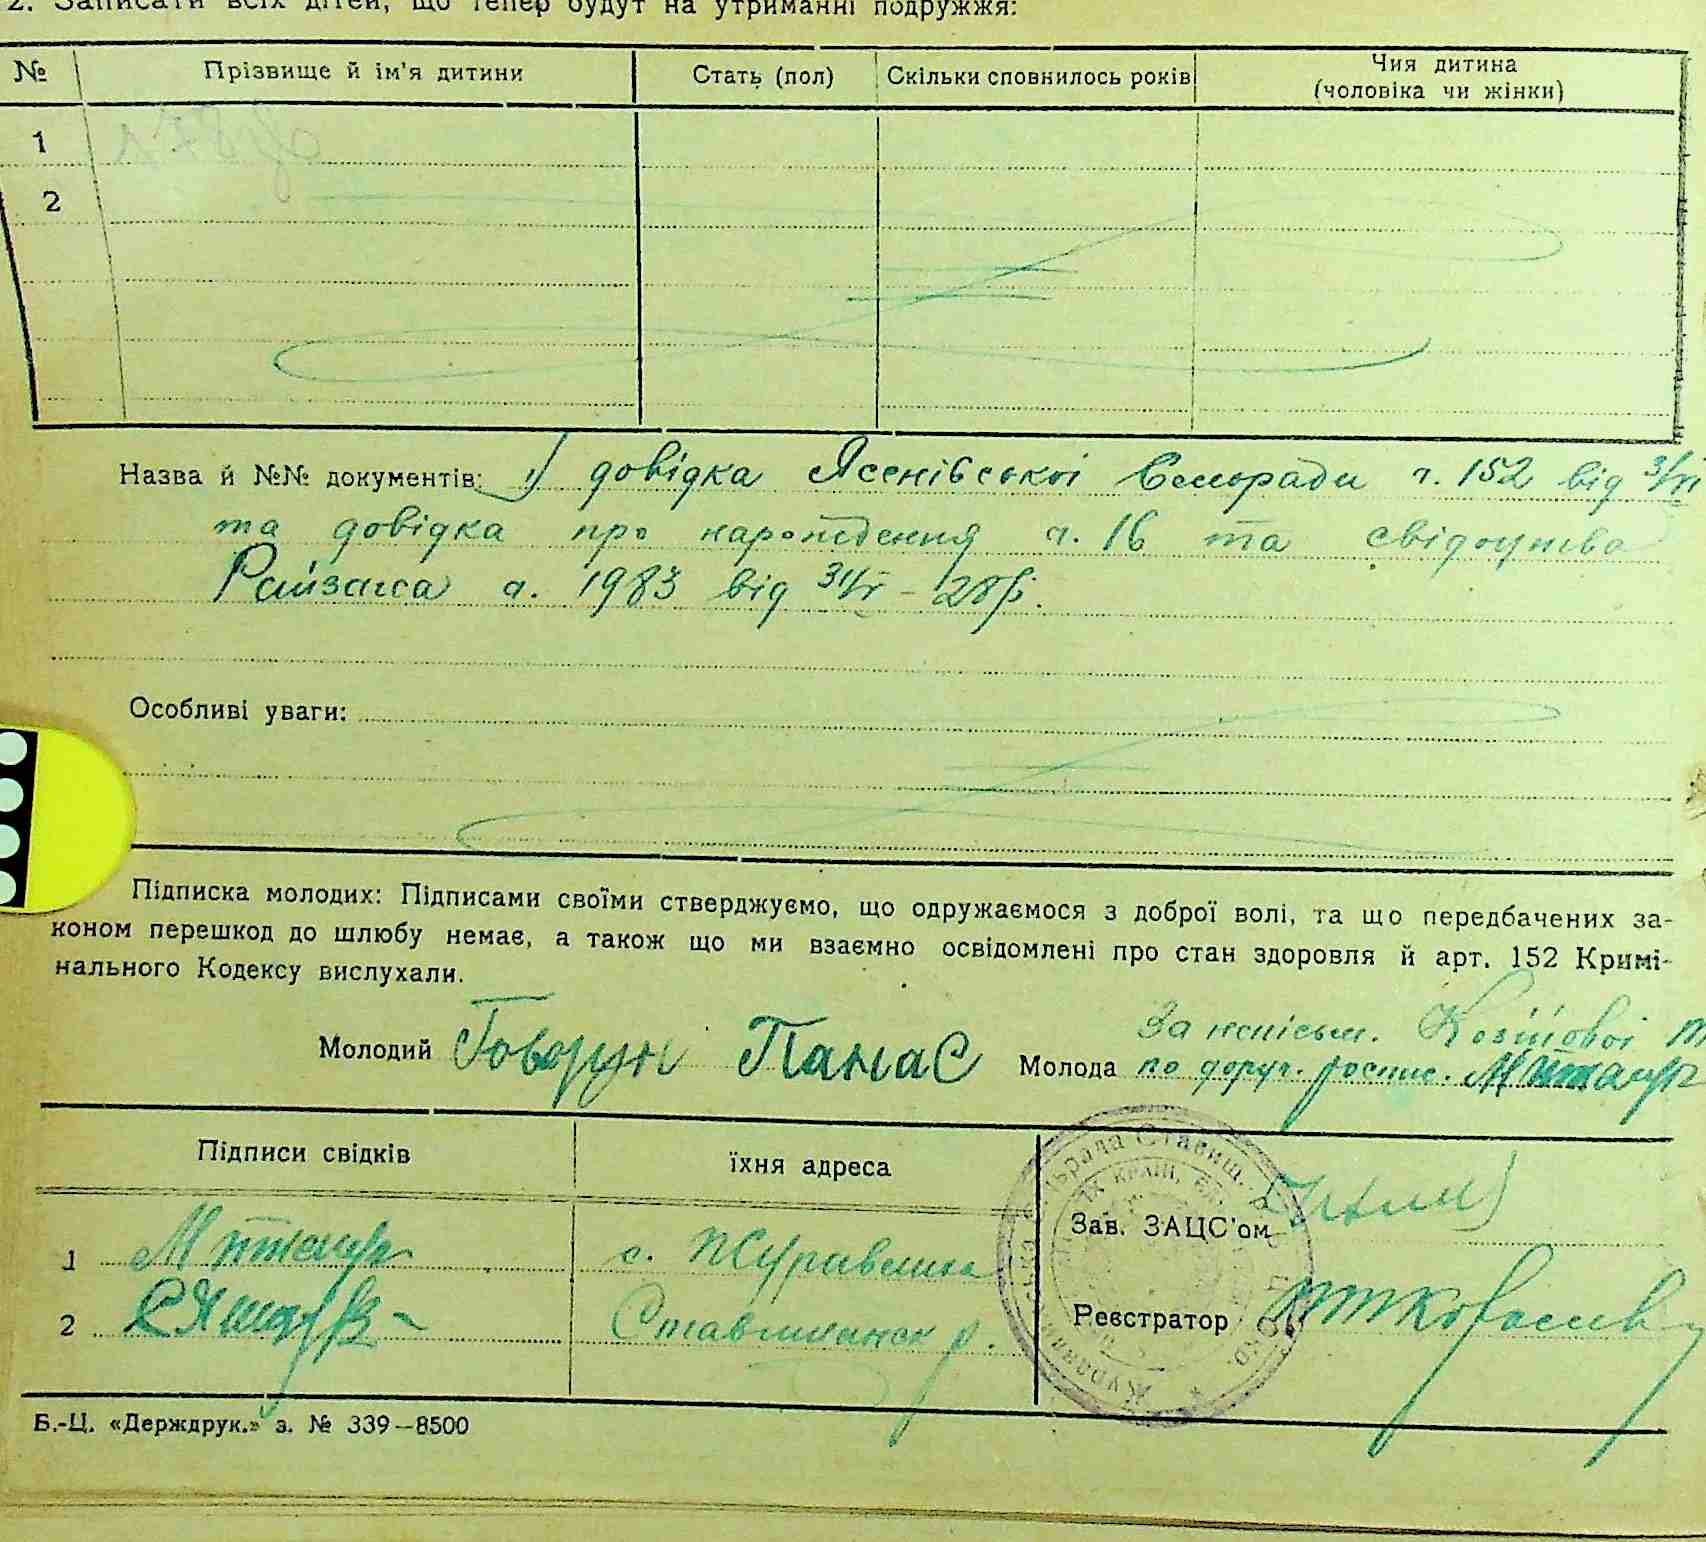 2. Записати всіх дітей, що тепер будут на утриманні подружжя:
№ Прізвище й ім'я дитини Стать (пол) Скільки сповнилось років Чия дитина (чоловіка чи жінки)
1
2
Назва й №№ документів: 1) довідка Ясенівської Сельради ч. 152 від
та довідка про народження ч. 16 та свідоцтва
Райзагса ч. 1983 від
Особливі уваги:
Підписка молодих: Підписами своїми стверджуємо, що одружаємося з доброї волі, та що передбачених за-
коном перешкод до шлюбу немає, а також що ми взаємно освідомлені про стан здоровля й арт. 152 Кримі-
нального Кодексу вислухали.
За неписьм.
Молодий Говорун Панас Молода по доруч. роспис.
Підписи свідків їхня адреса
Зав. ЗАЦС'ом
1 с. Журавлиха
Реєстратор
2 Ставищанськ р.
Б.-Ц. «Держдрук.» з. № 339—8500